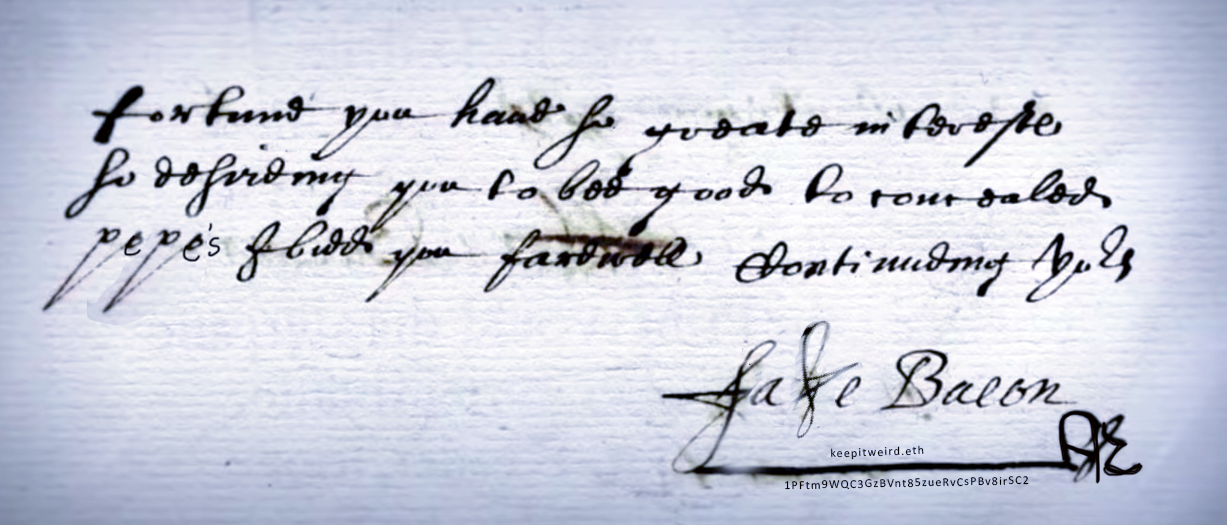 fortune you haue so greate intereste
so desireing you to bee good to concealed
pepe's I bidd you farewell Continueing yors
Fake Bacon
keepitweird.eth
1PFtm9WQC3GzBVnt85zueRvCsPBv8irSC2